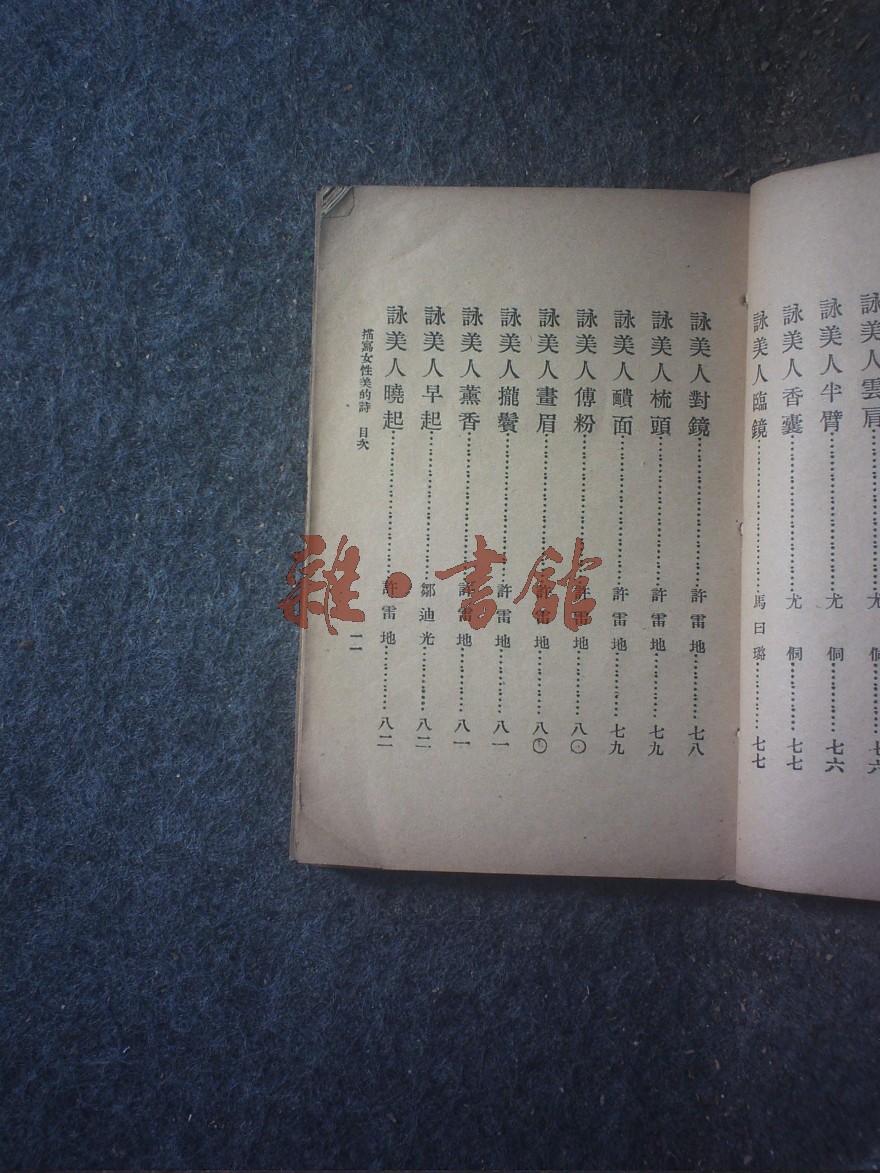 詠美人雲肩……尤侗……七六
詠美人半臂……尤侗……七六
詠美人香囊……尤侗……七七
詠美人臨鏡……馬日璐……七七
詠美人對鏡……許雷地……七八
詠美人梳頭……許雷地……七九
詠美人靧面……許雷地……七九
詠美人傅粉……許雷地……八〇
詠美人畫眉……許雷地……八〇
詠美人攏鬢……許雷地……八一
詠美人薰香……許雷地……八一
詠美人早起……鄒迪光……八二
詠美人曉起……許雷地……八二
描寫女性美的詩 目次
一一
雜·書館